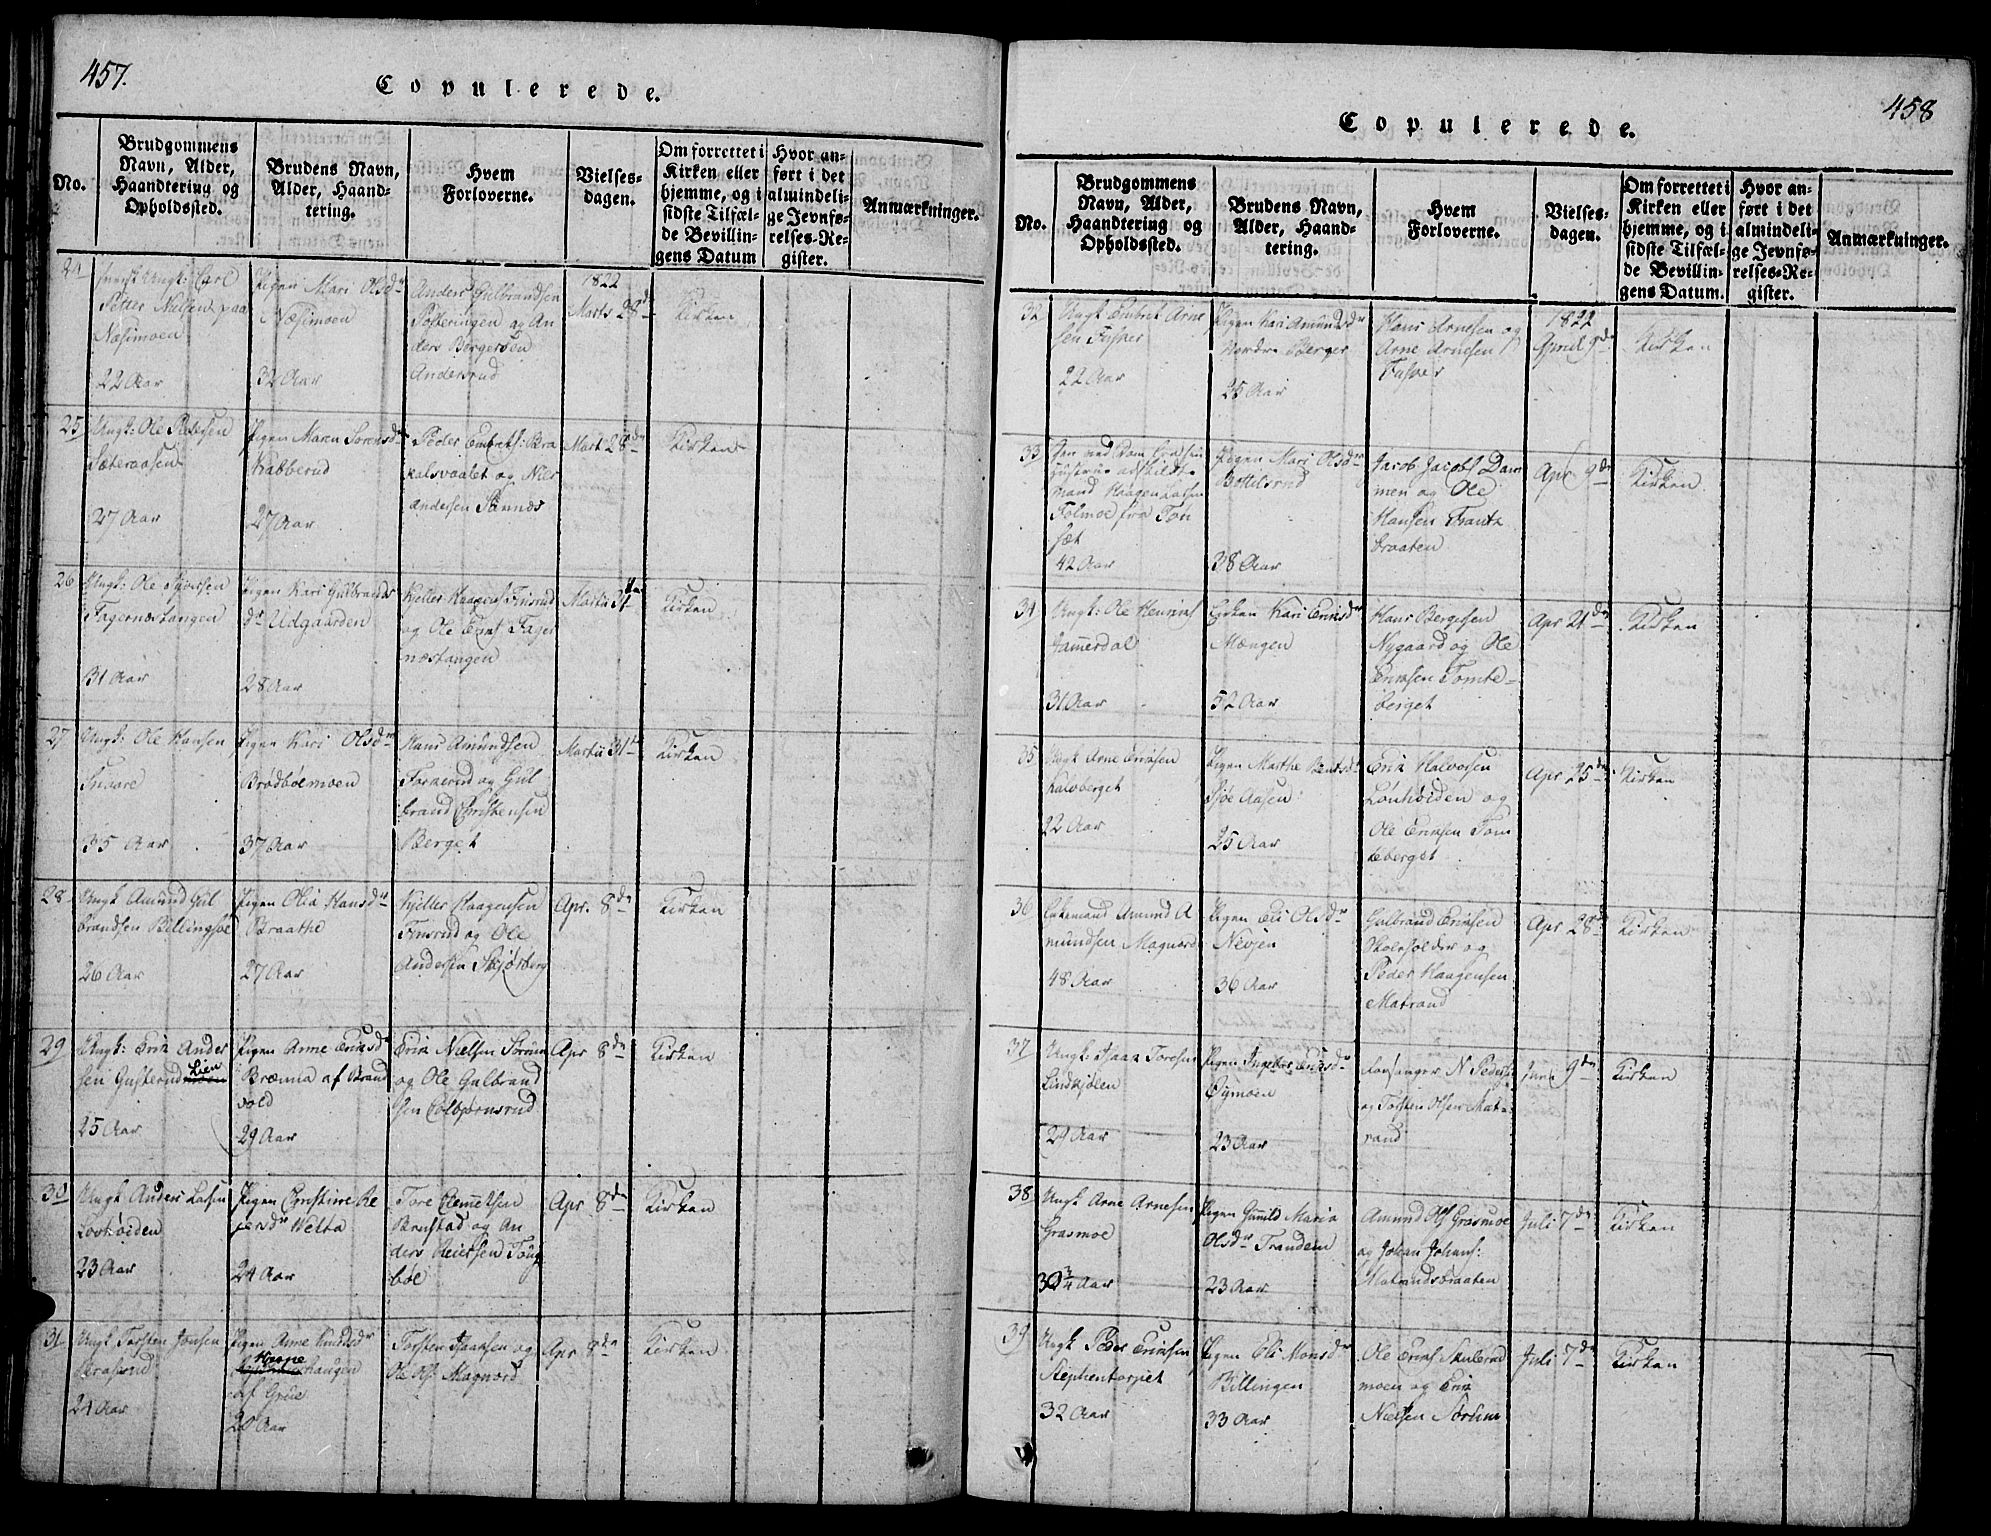 457.
Copulerede.
No.
Brudgommens
Navn, Alder,
Haandtering og
Opholdssted.
Brudens Navn,
Alder, Haand-
tering.
Hvem
Forloverne.
Vielses-
dagen.
Om forrettet i
Kirken eller
hjemme, og i
sidste Tilfæl-
de Bevillin-
gens Datum
Hvor an-
ført i det
almindeli-
ge Jevnfø-
relses-Re-
gister.
Anmærkninger.
24
Ungk: Carl
Petter Nielsen paa
Næsimoen
22 Aar
Pigen Mari Olsdr
Næsimoen
32 Aar
Anders Gulbrandsen
og An
ders Bergersen
Andersrud
1822
Marts 28d
Kirken
25
Ungk: Ole Pedersen
Sæteraasen
27 Aar
Pigen Maren Sørensdr
Kabberud
27 Aar
Peder Embrets: Bra
kalsvaalet og Niels
Andersen Sønnæs
Mart 28de
Kirken
26
Ungk: Ole Syversen
Fagernæstangen
31 Aar
Pigen Kari Gulbrands
dr Udgaarden
28 Aar
Kjeller Haagens Finsrud
og Ole Fager
næstangen
Martii 31te
Kirken
27
Ungk: Ole Hansen
Snare
35 Aar
Pigen Kari Olsdr
Brødbøemoen
37 Aar
Hans Amundsen
og Gul
brand Christensen
Berget
Martii 31t
Kirken
28
Ungk Amund Gul
brandsen Billingsøe
26 Aar
Pigen Olia Hansdr
Braathe
27 Aar
Kjeller Haagensen
Finsrud og Ole
Andersen Skjørberg
Apr. 8de
Kirken
29
Ungk: Erik Ander
sen Gusterud Lien
25 Aar
Pigen Anne Eriksdr
Brænna af Brand
vold
29 Aar
Erik Nielsen Sorum
og Ole Gulbrand
sen Colbjørnsrud
Apr 8de
Kirken
30
Ungk Anders Larsen
Lovhøiden
23 Aar
Pigen Christine Re
jersdr Welta
24 Aar
Tore Clemetsen
og An
ders Reiersen Toug
bøl
Apr 8de
Kirken
31
Ungk Torsten Jonsen
24 Aar
Pigen Anne Knudsdr
haugen
af Grue
20 Aar
Torsten Isaaksen og
Ole Ols: Magnord
Apr 8de
Kirken
458
Copulerede.
No.
Brudgommens
Navn, Alder,
Haandtering og
Opholdssted.
Brudens Navn,
Alder, Haand-
tering.
Hvem
Forloverne.
Vielses-
dagen.
Om forrettet i
Kirken eller
hjemme, og i
sidste Tilfæl-
de Bevillin-
gens Datum.
Hvor an-
ført i det
almindeli-
ge Jevnfø-
relses-Re-
gister.
Anmærkninger.
32
Ungk Embret Arne
sen Fusker
22 Aar
Pigen Kari Amundsdr
Nordre Berger
25 Aar
Hans Arnesen og
Arne Arnesen
Fusker
1822
April 9de
Kirken
33
Den ved Dom fra sin
Hustrue adskildte
mand Haagen Larsen
Tolmoe fra Tøn
set
42 Aar
Pigen Mari Olsdr
Bottilsrud
38 Aar
Jacob Jacobs Dam
men og Ole
Hansen Frantz
braaten
Apr 9de
Kirken
34
Ungk: Ole Henriks
Jammerdal
31 Aar
Enken Kari Eriksdr
Mængen
52 Aar
Hans Bergersen
Nygaard og Ole
Eriksen Tomte-
berget
Apr 21de
Kirken
35
Ungk Arne Eriksen
Kalvberget
22 Aar
Pigen Marthe Berntsdr
Sjøe Aasen
25 Aar
Erik Halvorsen
Lønhøiden og
Ole Eriksen Tom
teberget
Apr 25de
Kirken
36
Enkemand Amund A
mundsen Magnord
48 Aar
Pigen Eli Olsdr
Nevjen
36 Aar
Gulbrand Eriksen
Skoleholder og
Peder Haagensen
Matrand
Apr 28d
Kirken
37
Ungk: Isaak Toresen
Lindkjølen
24 Aar
Pigen Ingebor Eriksdr
Øymoen
23 Aar
Forsanger N Peders:
og Torsten Olsen Mat-
rand
Juni 9de
Kirken
38
Ungk Arne Arnesen
Grasmoe
30 3/4 Aar
Pigen Gunild Maria
Olsdr Trandem
23 Aar
Amund Ols Grasmoe
og Johan Johans:
Matrandsbraaten
Juli 7de
Kirken
39
Ungk Peder Eriksen
Stephentorpet
32 Aar
Pigen Eli Monsdr
Billingen
33 Aar
Ole Eriks Skulerud
moen og Erik
Nielsen Sorum
Juli 7de
Kirken